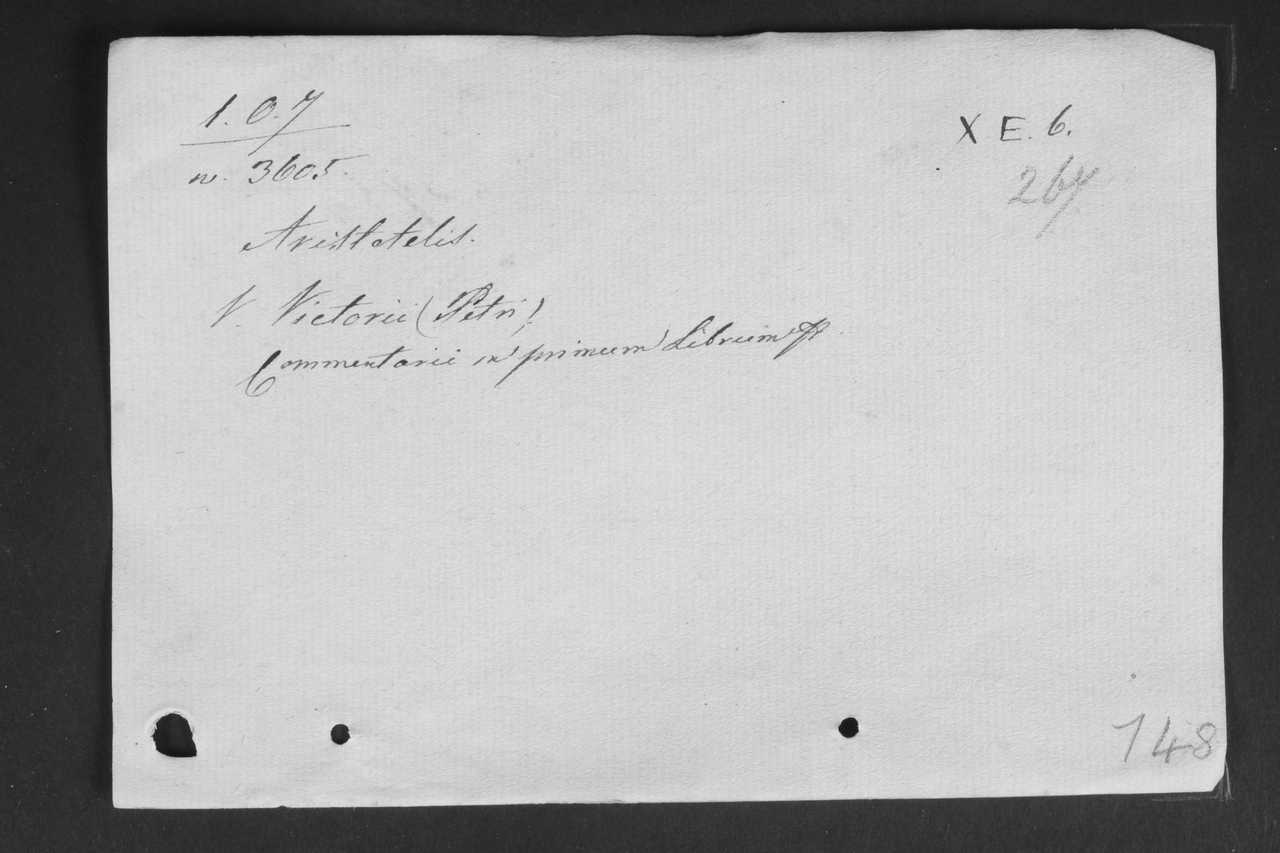 1. O. 7
n. 3605.
X E. 6.
267
Aristotelis.
V. Victorii (Petri)
Commentarii in primum Librum
148